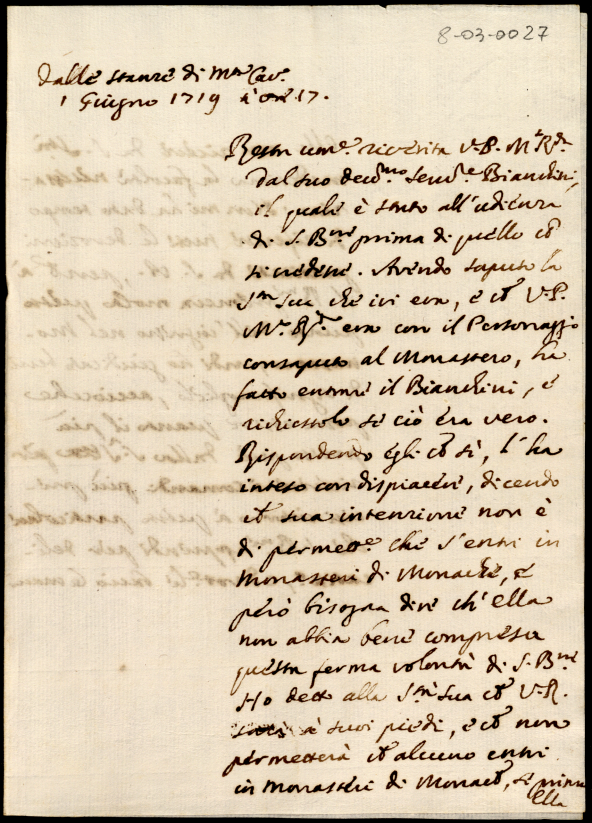 8-03-0027
Dalle stanze di M.re Cav.e
1 Giugno 1719 à ore 17.
Resta um.e riverita V.P. M.to R.da
dal suo dev.mo serv.re Bianchini,
il quale è stato all'udienza
di S. B.ne prima di quello ch̃
si credesse. Avendo saputo la
S.tà Sua che ivi era, e ch̃ V.P.
M.to R.da era con il Personaggio
consaputo al Monastero, ha
fatto entrare il Bianchini, e
richiestolo se ciò era vero.
Rispondendo egli ch̃ sì, l'ha
inteso con dispiacere, dicendo
ch̃ sua intenzione non è
di permett.e che s'entri in
Monasteri di Monache, e
però bisogna dire ch'ella
non abbia bene compresa
questa ferma volontà di S. B.ne
Ho detto alla S.tà Sua ch̃ V.R.
à suoi piedi, e ch̃ non
permetterà ch̃ alcuno entri
in Monasteri di Monach̃, se prima
ella